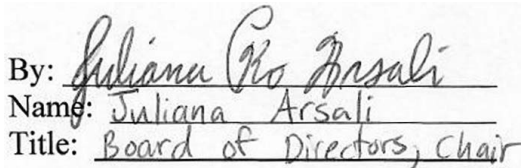 By: Juliana Ko Arsali
Name: Juliana Arsali
Title: Board of Directors, Chair